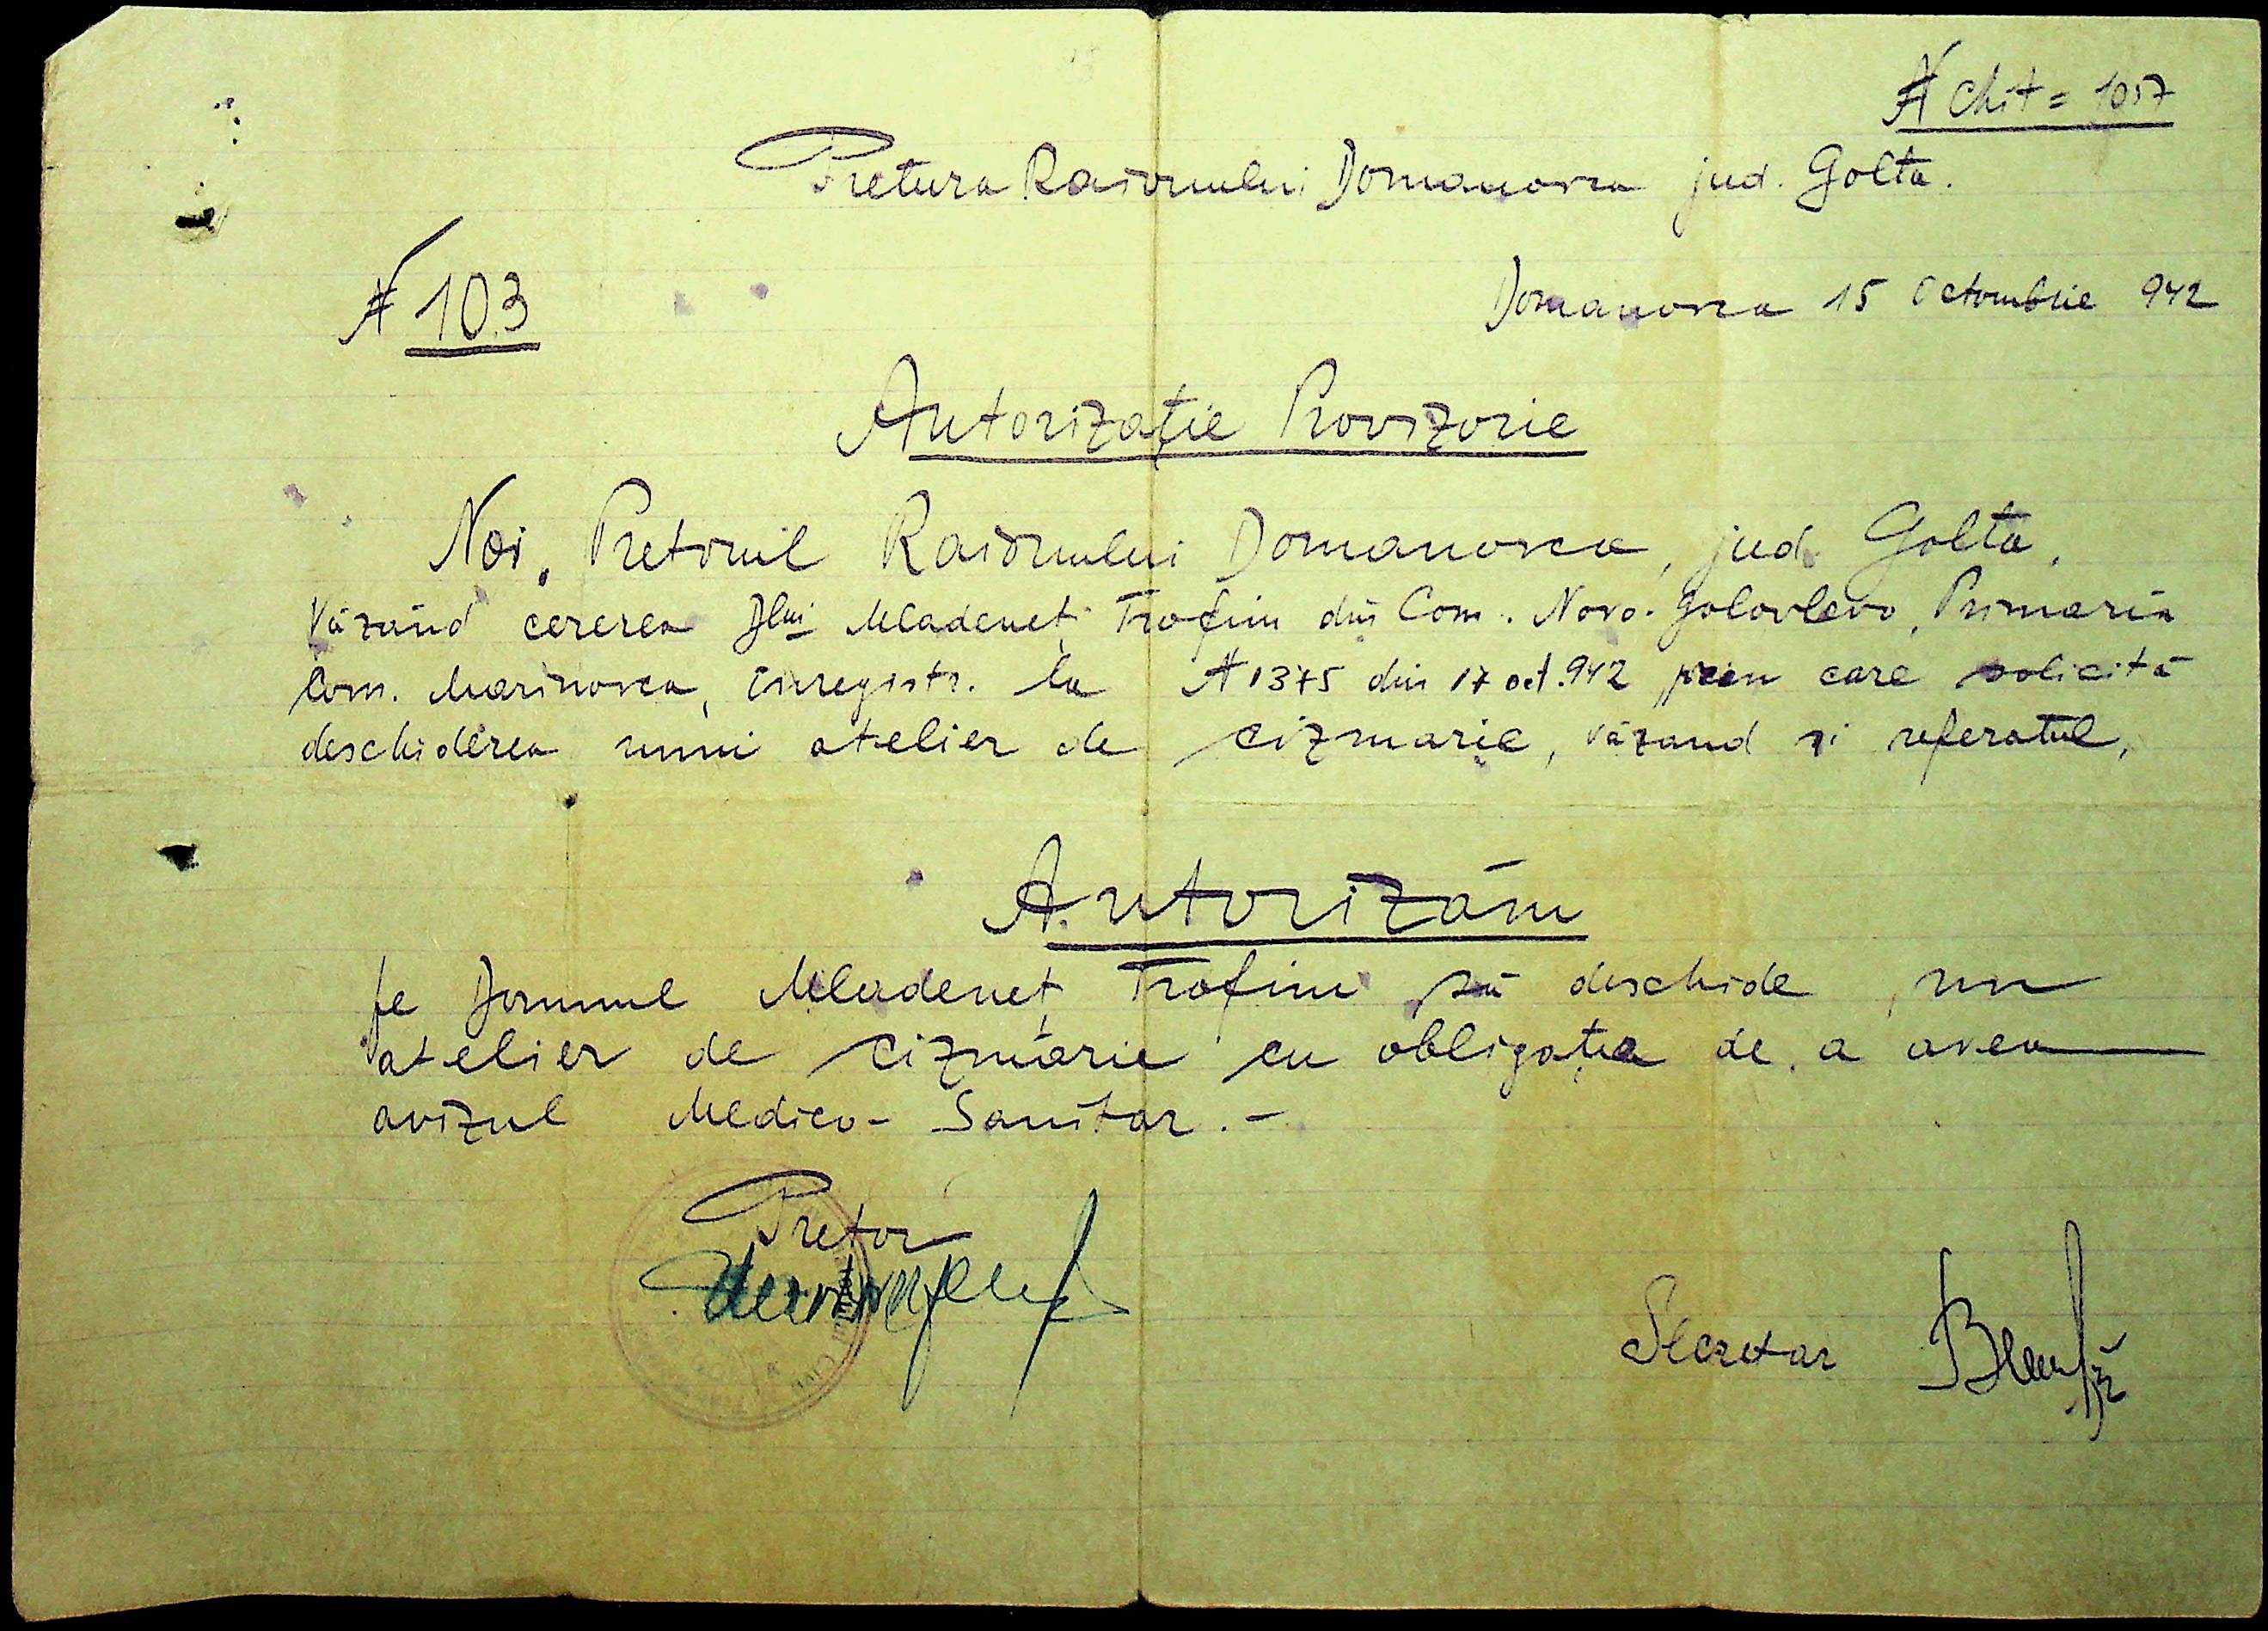 N Chit = 1057
Pretura Raionului Domanovca jud. Golta.
N 103
Domanovca 15 Octombrie 942
Autorizație Provizorie
Noi, Pretorul Raionului Domanovca, jud. Golta,
Văzând cererea Dlui Mladeneț Trofim din Com. Novo-Golovlevo, Primăria
Com. Marinovca, înregistr. la N 1375 din 17 oct. 942 prin care solicită
deschiderea unui atelier de cizmarie, văzand și referatul,
Autorizăm
pe Domnul Mladeneț Trofim să deschide un
atelier de cizmărie cu obligația de a avea
avizul Medico-Sanitar.-
Pretor
Secretar